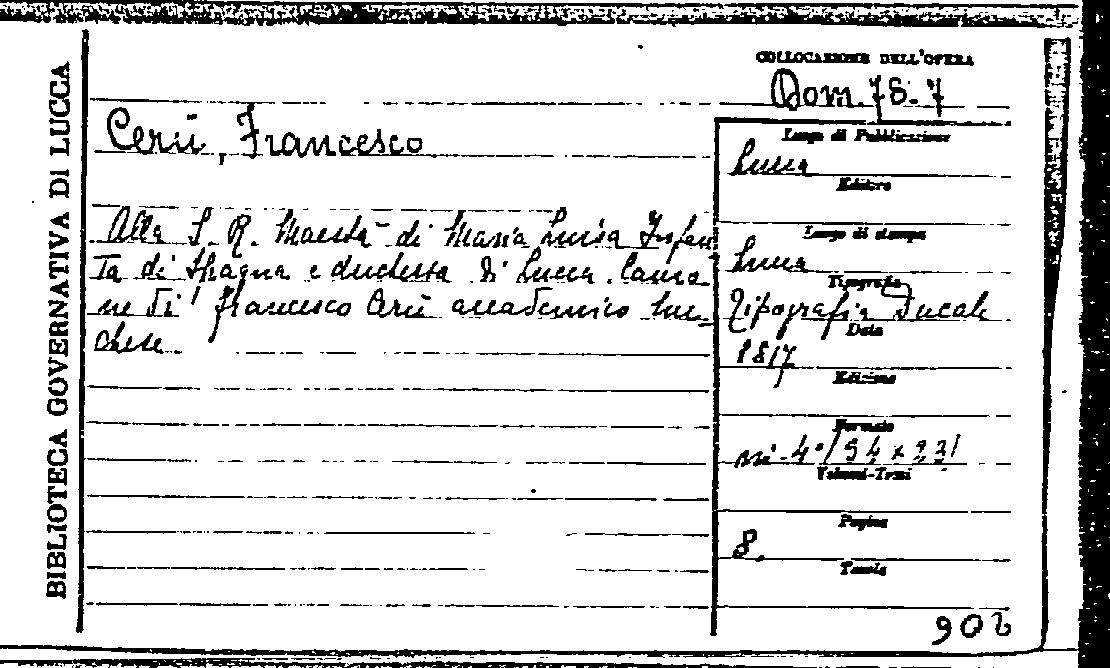 BIBLIOTECA GOVERNATIVA DI LUCCA
COLLOCAZIONE DELL'OPERA
Dom. 78. 7
Cerù, Francesco
Alla S. R. Maestà di Maria Luisa Infan
ta di Spagna e duchessa di Lucca. Canzo-
ne di Francesco Cerù accademico luc-
chese
Luogo di Pubblicazione
Lucca
Editore
Luogo di stampa
Lucca
Tipografia
Tipografia Ducale
Data
1817
Edizione
Formato
in-4°
Volumi-Tomi
Pagine
8.
Tavole